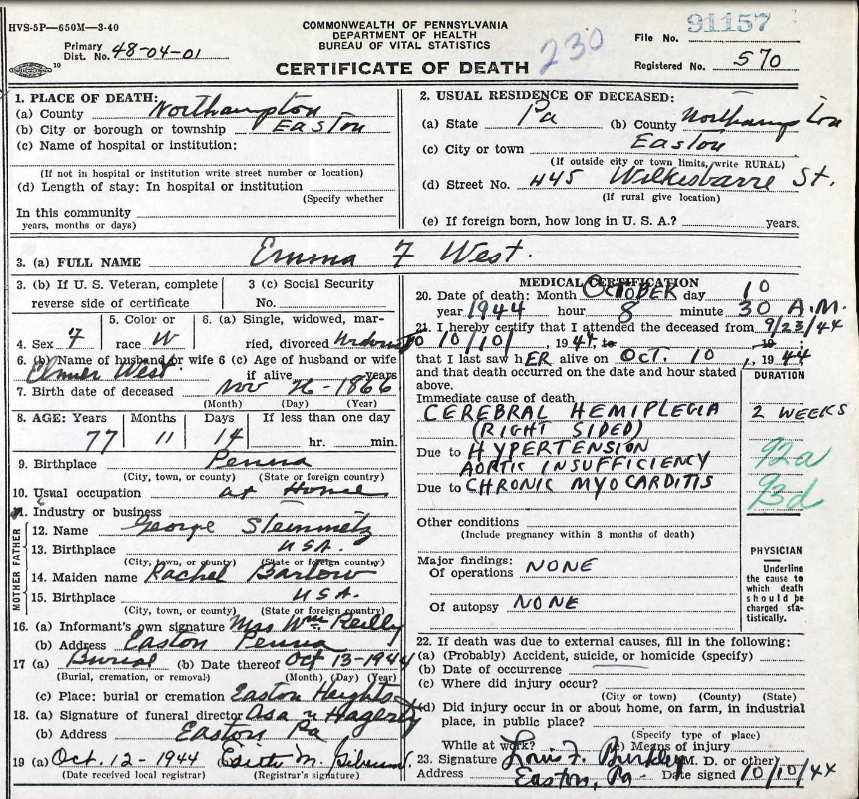 HVS-5P—650M—3-40
COMMONWEALTH OF PENNSYLVANIA
DEPARTMENT OF HEALTH
BUREAU OF VITAL STATISTICS
CERTIFICATE OF DEATH
230
Primary Dist. No. 48-04-01
File No. 91157
Registered No. 570
1. PLACE OF DEATH:
(a) County Northampton
(b) City or borough or township Easton
(c) Name of hospital or institution:
(If not in hospital or institution write street number or location)
(d) Length of stay: In hospital or institution
(Specify whether
In this community
years, months or days)
2. USUAL RESIDENCE OF DECEASED:
(a) State Pa (b) County Northampton
(c) City or town Easton
(If outside city or town limits, write RURAL)
(d) Street No. 445 Wilkesbarre St.
(If rural give location)
(e) If foreign born, how long in U. S. A.? years.
3. (a) FULL NAME Emma F West.
3. (b) If U. S. Veteran, complete reverse side of certificate
3 (c) Social Security No.
4. Sex F
5. Color or race W
6. (a) Single, widowed, married, divorced Widowed
6. (b) Name of husband or wife Elmer West
6 (c) Age of husband or wife if alive years
7. Birth date of deceased Nov 26-1866
(Month) (Day) (Year)
8. AGE: Years Months Days If less than one day
77 11 14 hr. min.
9. Birthplace Penna
(City, town, or county) (State or foreign country)
10. Usual occupation at Home
11. Industry or business
FATHER
12. Name George Steinmetz
13. Birthplace USA.
(City, town, or county) (State or foreign country)
MOTHER
14. Maiden name Rachel Barlow
15. Birthplace U.S.A.
(City, town, or county) (State or foreign country)
16. (a) Informant's own signature Mrs Wm Reilly
(b) Address Easton Penna
17 (a) Burial (b) Date thereof Oct 13-1944
(Burial, cremation, or removal) (Month) (Day) (Year)
(c) Place: burial or cremation Easton Heights
18. (a) Signature of funeral director Asa Hagerty
(b) Address Easton Pa
19 (a) Oct. 12-1944 Edith M.
(Date received local registrar) (Registrar's signature)
MEDICAL CERTIFICATION
20. Date of death: Month OCTOBER day 10
year 1944 hour 8 minute 30 A.M.
21. I hereby certify that I attended the deceased from 9/23/44
to 10/10/, 1944, to , 19 ;
that I last saw hER alive on OCT. 10, 1944
and that death occurred on the date and hour stated above.
DURATION
Immediate cause of death
CEREBRAL HEMIPLEGIA 2 WEEKS
(RIGHT SIDED)
Due to HYPERTENSION
AORTIC INSUFFICIENCY 92a
Due to CHRONIC MYOCARDITIS 93d
Other conditions
(Include pregnancy within 3 months of death)
Major findings:
Of operations NONE
Of autopsy NONE
PHYSICIAN
Underline the cause to which death should be charged statistically.
22. If death was due to external causes, fill in the following:
(a) (Probably) Accident, suicide, or homicide (specify)
(b) Date of occurrence
(c) Where did injury occur?
(City or town) (County) (State)
(d) Did injury occur in or about home, on farm, in industrial place, in public place?
(Specify type of place)
While at work? (e) Means of injury
23. Signature Louis F. Buckley (M. D. or other)
Address Easton, Pa- Date signed 10/10/44